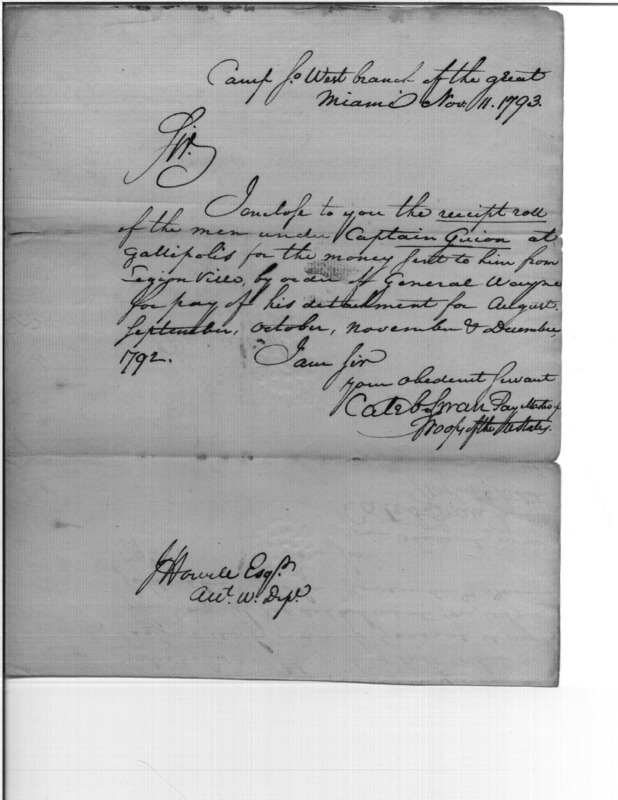 Camp So West branch of the great
Miami Nov. 11. 1793.
Sir.
I enclose to you the receipt roll
of the men under Captain Guion at
Gallipolis for the money sent to him from
Legion Ville, by order of General Wayne
for pay of his detachment for August.
September, October, November & December,
1792.
I am Sir
your obedient Servant
Caleb Swan Pay Master
Troops of the U States.
J Howell Esqr.
Acct. W. Dept.